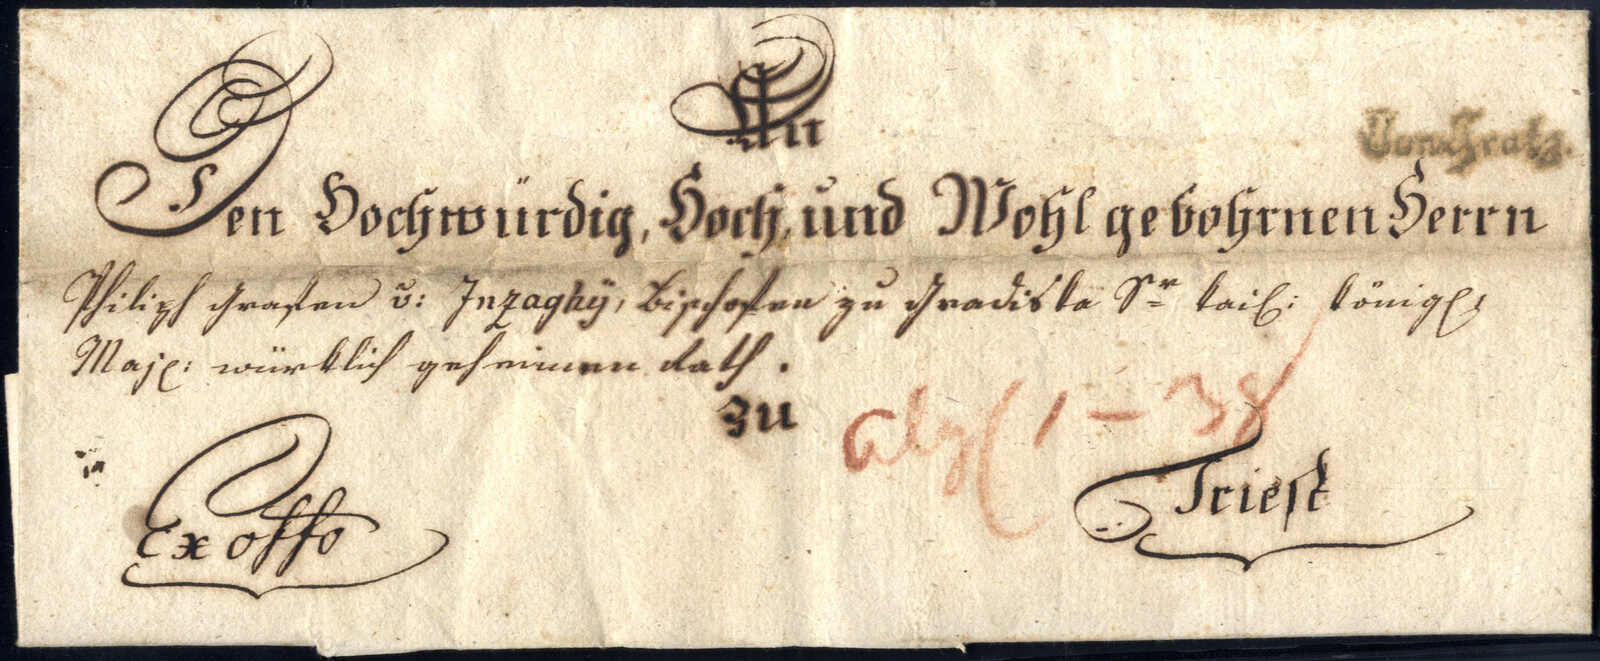 An
Von Gratz.
Den Hochwürdig, Hoch, und Wohl gebohrnen Herrn
Philiph Grafen v: Inzaghÿ, Bischofen zu Gradiska Sr kaiſ: königl:
Maj: würklich geheimen Rath.
zu
1 - 38
Trieſt
Ex offo